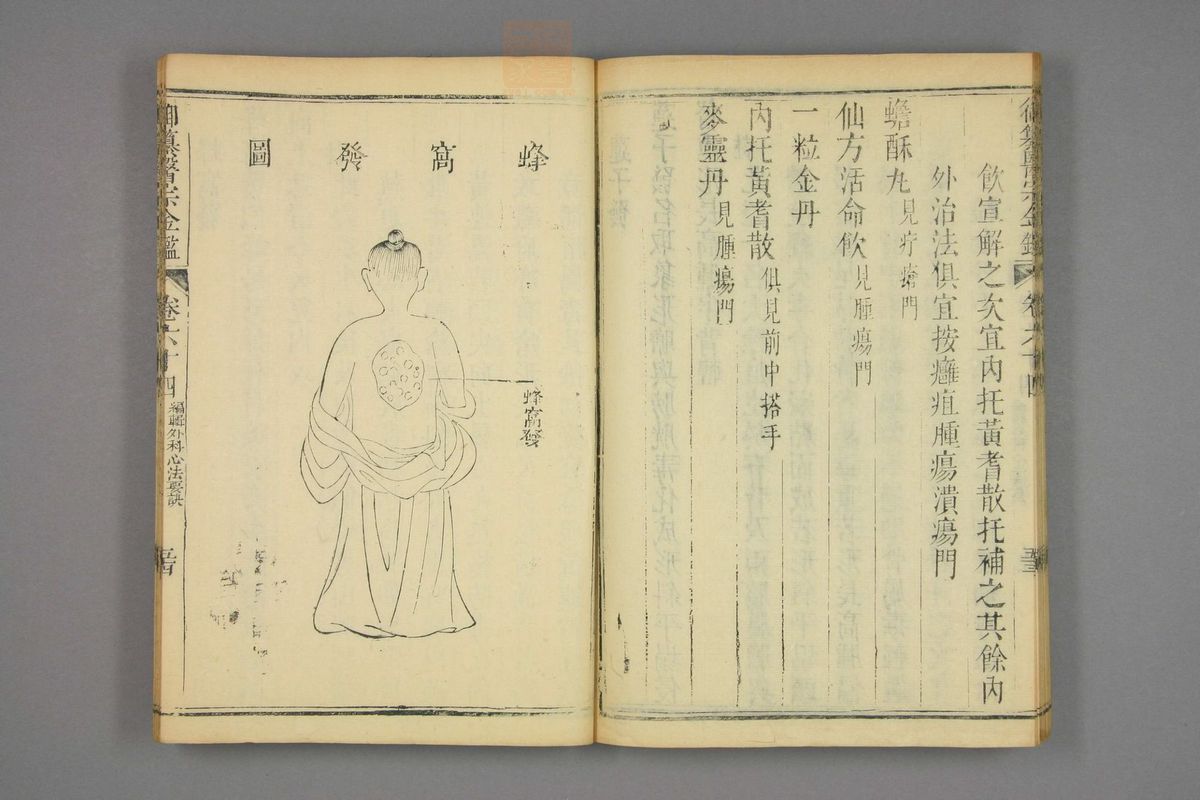 飲宣解之次宜內托黃耆散托補之其餘內
外治法俱宜按癰疽腫瘍潰瘍門
蟾酥丸見疔瘡門
仙方活命飲見腫瘍門
一粒金丹
內托黃耆散俱見前中搭手
麥靈丹見腫瘍門
蜂窩發圖
蜂窩發
御纂醫宗金鑑
卷六十四
編輯外科心法要訣